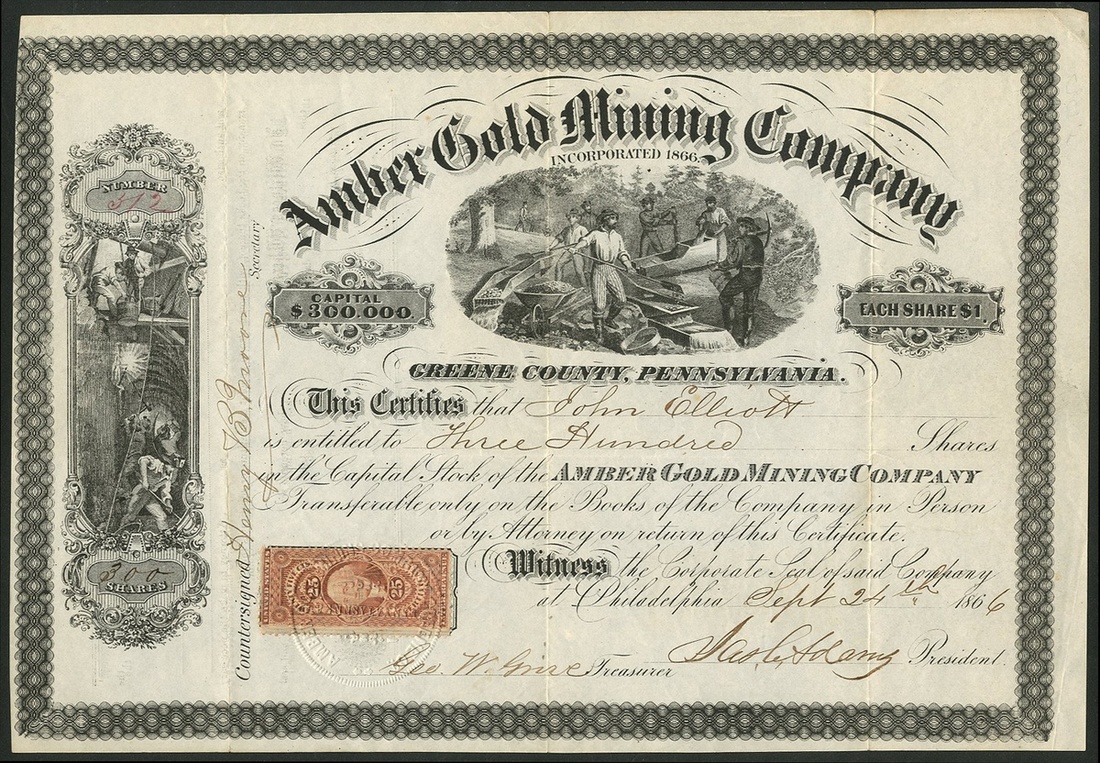 NUMBER
512
300
SHARES
Countersigned Henry B. Moore Secretary
Amber Gold Mining Company
INCORPORATED 1866.
CAPITAL
$300.000.
EACH SHARE $1.
GREENE COUNTY, PENNSYLVANIA.
This Certifies that John Elliott
is entitled to Three Hundred Shares
in the Capital Stock of the AMBER GOLD MINING COMPANY
Transferable only on the Books of the Company in Person
or by Attorney on return of this Certificate.
Witness the Corporate Seal of said Company
at Philadelphia Sept 24th 1866
25 25
Geo. W. Treasurer
President